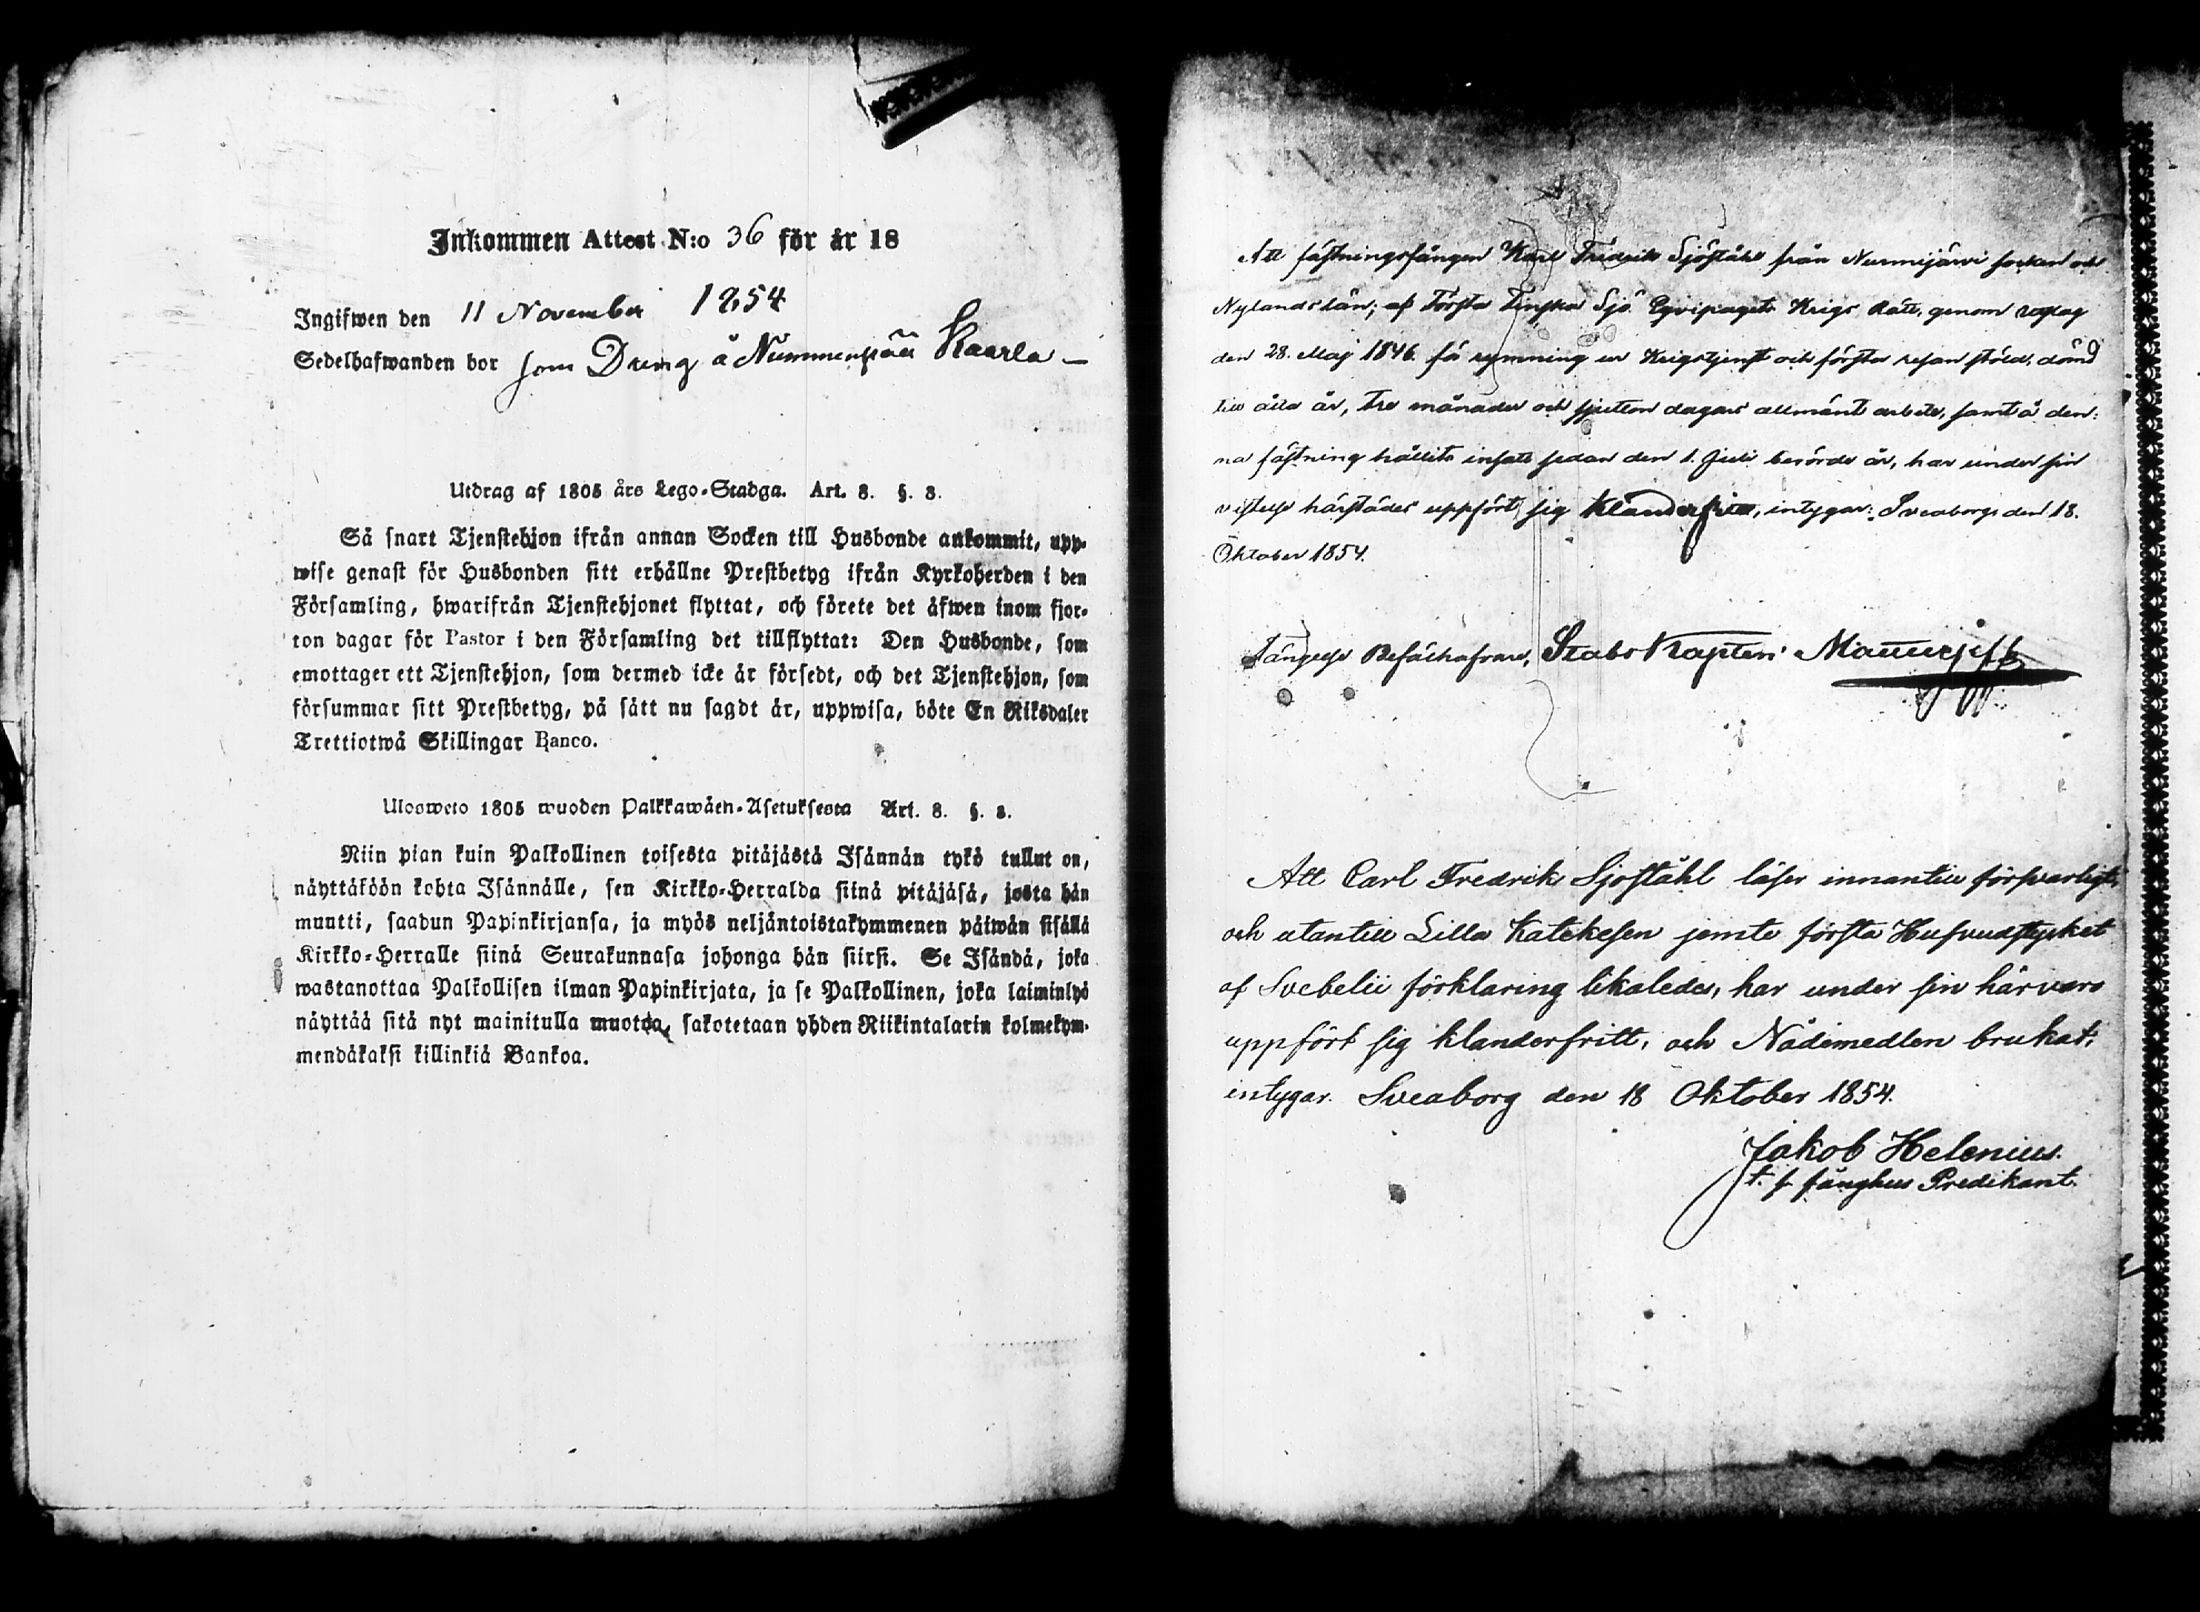 Inkommen Attest N:o 36 för år 18
Ingifwen den 11 November 1854
Sedelhafwanden bor som Dreng å Nummenpää Kaarla —
Utdrag af 1805 års Lego-Stadga. Art. 8. §. 3.
Så snart Tjenstehjon ifrån annan Socken till Husbonde ankommit, upp-
wise genast för Husbonden sitt erhållne Prestbetyg ifrån Kyrkoherden i den
Församling, hwarifrån Tjenstehjonet flyttat, och förete det äfwen inom fjor-
ton dagar för Pastor i den Församling det tillflyttat: Den Husbonde, som
emottager ett Tjenstehjon, som dermed icke är försedt, och det Tjenstehjon, som
försummar sitt Prestbetyg, på sätt nu sagdt är, uppwisa, böte En Riksdaler
Trettiotwå Skillingar Banco.
Ulosweto 1805 wuoden Palkkawäen-Asetuksesta Art. 8. §. 3.
Niin pian kuin Palkollinen toisesta pitäjästä Isännän tykö tullut on,
näyttäköön kohta Isännälle, sen Kirkko-Herralda siinä pitäjäsä, josta hän
muutti, saadun Papinkirjansa, ja myös neljäntoistakymmenen päiwän sisällä
Kirkko-Herralle siinä Seurakunnasa johonga hän siirsi. Se Isändä, joka
wastanottaa Palkollisen ilman Papinkirjata, ja se Palkollinen, joka laiminlyö
näyttää sitä nyt mainitulla muotoa, sakotetaan yhden Riikintalarin kolmekym-
mendäkaksi killinkiä Bankoa.
Att fästningsfången Karl Fredrik Sjöståhl från Nurmijärvi socken och
Nylands län, af Första Finska Sjö Eqvipagets Krigs Rätt, genom utslag
den 28. Maj 1846. för rymning ur Krigstjenst och första resan stöld, dömd
till åtta år, tre månader och sjutton dagars allmänt arbete, samt å den:
na fästning hållits insatt sedan den 1. Juli berörde år, har under sin
vistelse härstädes uppfört sig klanderfritt, intygar: Sveaborg den 18.
Oktober 1854.
Fängelse Befälhafvare, Stabs Kapten
Att Carl Fredrik Sjöståhl läser innantill försvarligt,
och utantill Lilla Katekesen jemte första Hufvudstycket
af Svebelii förklaring likaledes, har under sin härvaro
uppfört sig klanderfritt, och Nådemedlen brukat;
intygar. Sveaborg den 18 Oktober 1854.
Jakob Helenius.
t. f. fånghus Predikant.